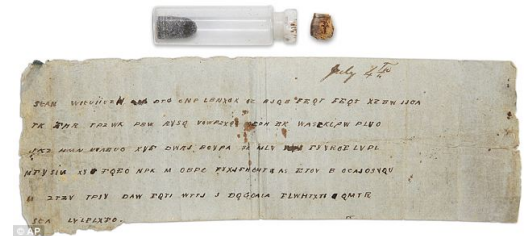 July 4th
SEAN WIEUIIUZH DTG CNP LBHXGK OZ BJQB FEQT FEQT XZBW JJOA
TK FHR TPZWK PBW RYSQ VOWPZXGG OEPF EK WASFKIPW PLVO
JKZ HMN NVAEUD XYE DWRJ BOYPA SK MLV FYYRDE LVPL
MFYSIN XY FQEO NPK M OBPC FYXJFHOHT AS ETOV B OCAJDSVQU
M ZTZV TPIY DAW FQTI WTTJ J DQGOAIA FLWHTXTI QMTR
SEA LVLFLXFO.
© AP